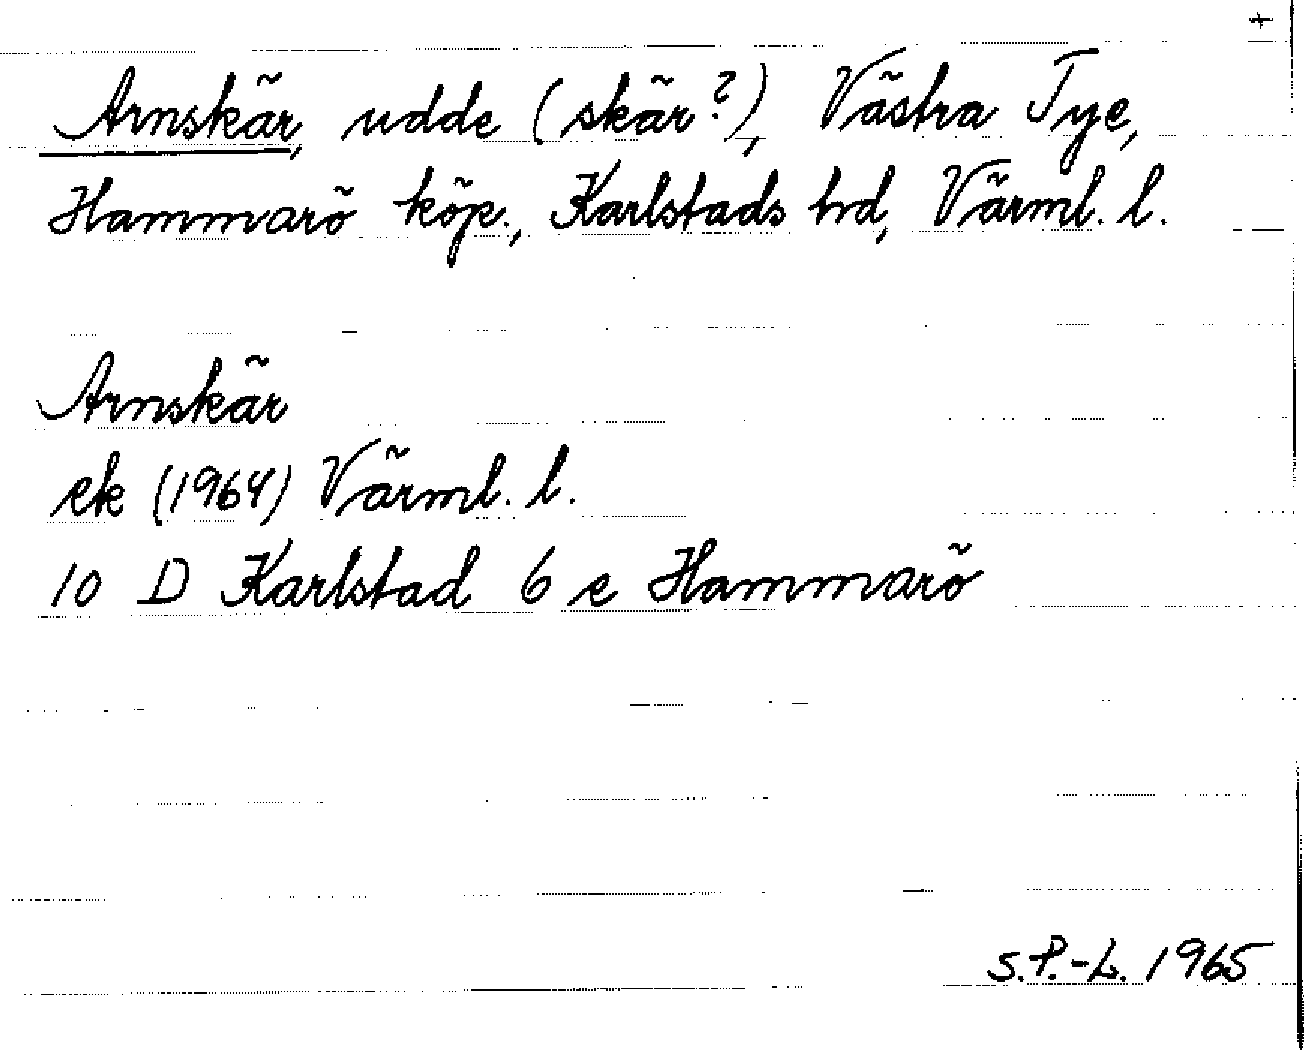 +
Arnskär, udde (skär?), Västra Tye,
Hammarö köp., Karlstads hd, Värml. l.
Arnskär
ek (1964) Värml. l.
10 D Karlstad 6 e Hammarö
S.P.-L. 1965